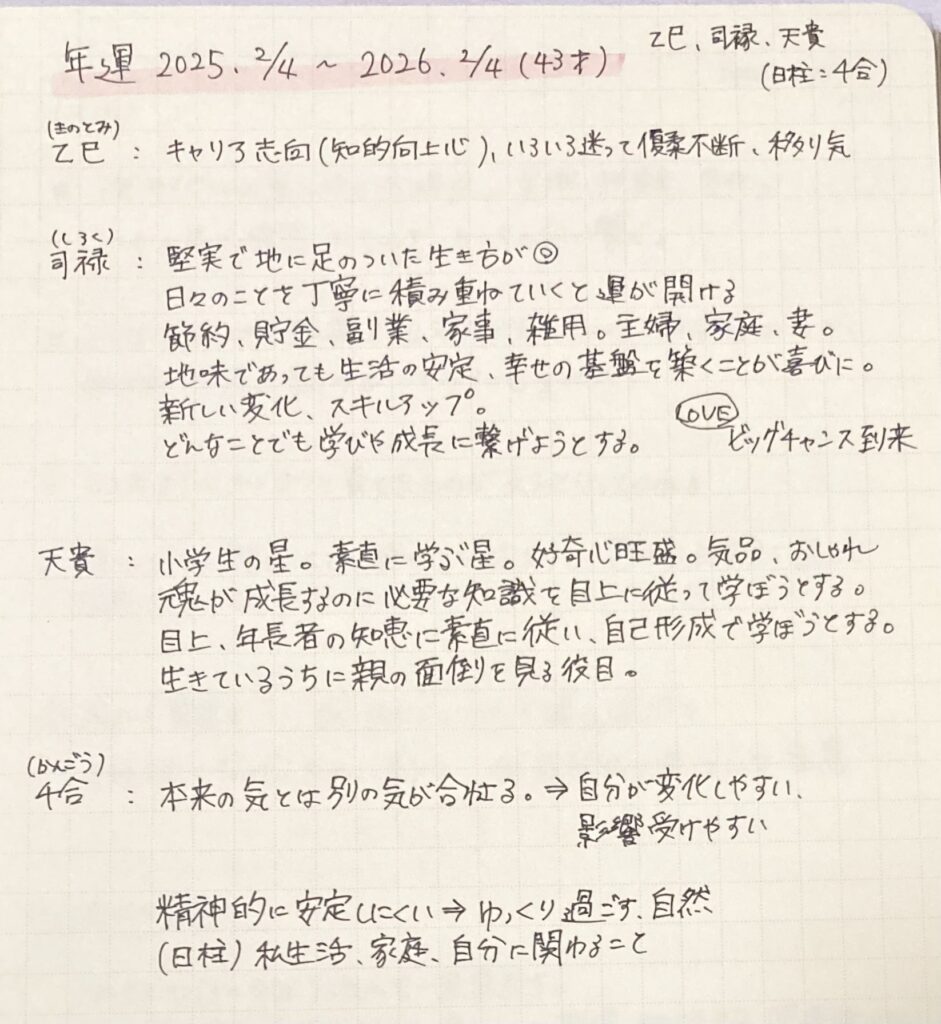 年運 2025. 2/4 ~ 2026. 2/4 (43才)
乙巳、司禄、天貴
(日柱:半合)
(きのとみ)
乙巳 : キャリア志向(知的向上心)、いろいろ迷って優柔不断、移り気
(しろく)
司禄 : 堅実で地に足のついた生き方が◎
日々のことを丁寧に積み重ねていくと運が開ける
節約、貯金、副業、家事、雑用。主婦、家庭、妻。
地味であっても生活の安定、幸せの基盤を築くことが喜びに。
新しい変化、スキルアップ。
どんなことでも学びや成長に繋げようとする。
LOVE ビッグチャンス到来
天貴 : 小学生の星。素直に学ぶ星。好奇心旺盛。気品、おしゃれ
魂が成長するのに必要な知識を目上に従って学ぼうとする。
目上、年長者の知恵に素直に従い、自己形成で学ぼうとする。
生きているうちに親の面倒を見る役目。
(はんごう)
半合 : 本来の気とは別の気が合せる。⇒ 自分が変化しやすい、
影響受けやすい
精神的に安定しにくい ⇒ ゆっくり過ごす、自然
(日柱) 私生活、家庭、自分に関わること